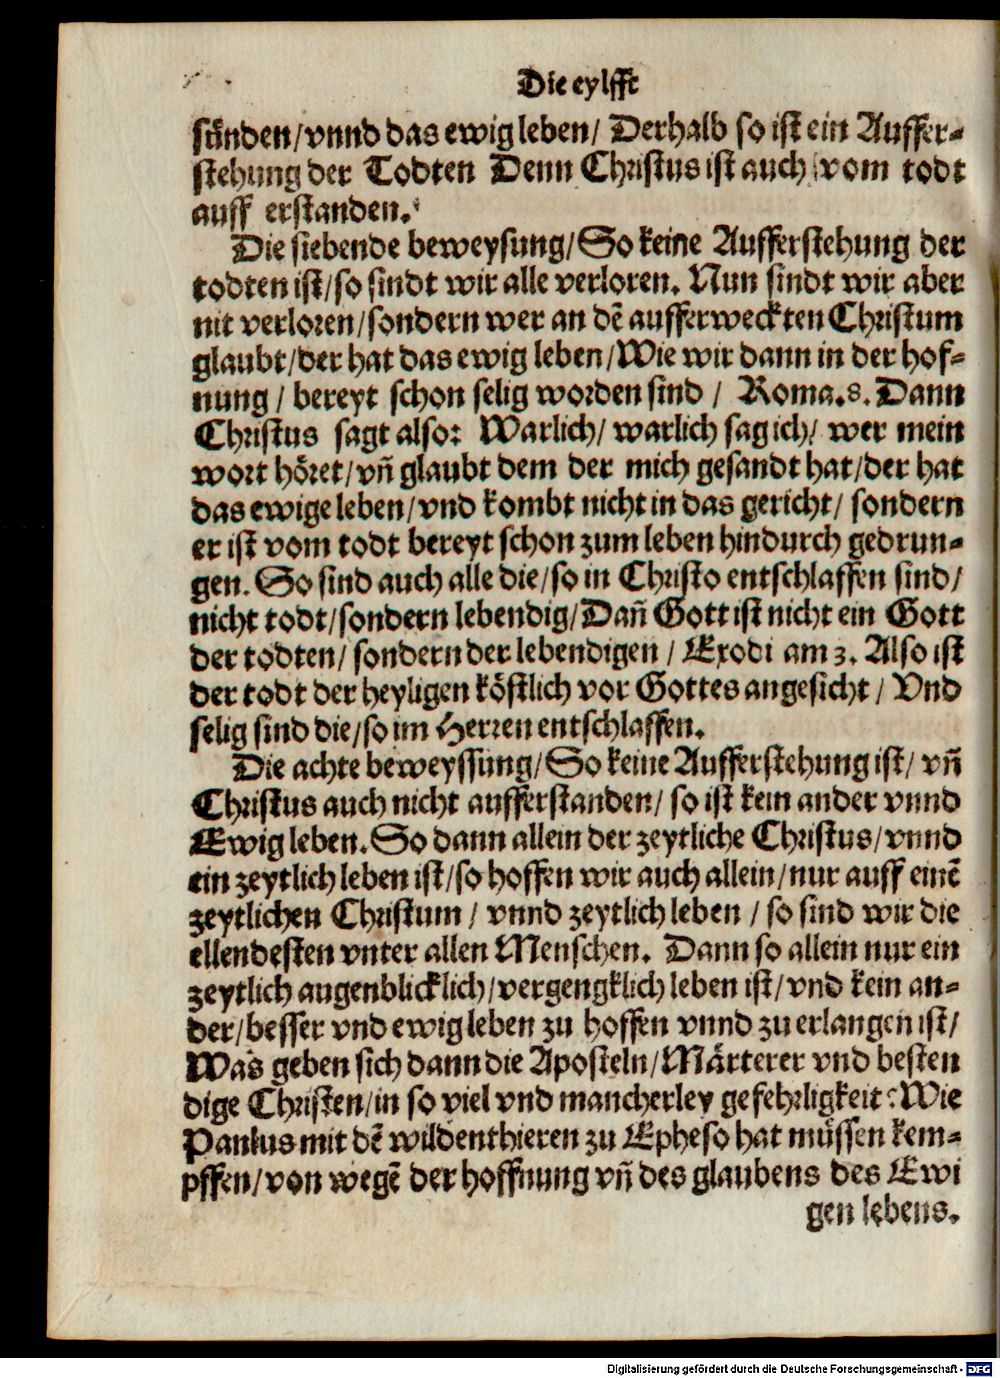 Die eylfft
sünden/vnnd das ewig leben/ Derhalb so ist ein Auffer-
stehung der Todten Denn Christus ist auch vom todt
auff erstanden.
Die siebende beweysung/So keine Aufferstehung der
todten ist/so sindt wir alle verloren. Nun sindt wir aber
nit verloren/sondern wer an dẽ aufferweckten Christum
glaubt/der hat das ewig leben/Wie wir dann in der hof-
nung/ bereyt schon selig worden sind / Roma.8. Dann
Christus sagt also: Warlich/ warlich sag ich/ wer mein
wort höret/vñ glaubt dem der mich gesandt hat/der hat
das ewige leben/vnd kombt nicht in das gericht/ sondern
er ist vom todt bereyt schon zum leben hindurch gedrun-
gen. So sind auch alle die/so in Christo entschlaffen sind/
nicht todt/sondern lebendig/Dañ Gott ist nicht ein Gott
der todten/ sondern der lebendigen / Exodi am 3. Also ist
der todt der heyligen köstlich vor Gottes angesicht / Vnd
selig sind die/so im Herren entschlaffen.
Die achte beweyssung/So keine Aufferstehung ist/ vñ
Christus auch nicht aufferstanden/ so ist kein ander vnnd
Ewig leben. So dann allein der zeytliche Christus/vnnd
ein zeytlich leben ist/so hoffen wir auch allein/nur auff einẽ
zeytlichen Christum / vnnd zeytlich leben / so sind wir die
ellendesten vnter allen Menschen. Dann so allein nur ein
zeytlich augenblicklich/vergengklich leben ist/vnd kein an-
der/besser vnd ewig leben zu hoffen vnnd zu erlangen ist/
Was geben sich dann die Aposteln/Märterer vnd besten
dige Christen/in so viel vnd mancherley gefehrligkeit: Wie
Paulus mit dẽ wilden thieren zu Epheso hat müssen kem-
pffen/von wegẽ der hoffnung vñ des glaubens des Ewi
gen lebens.
Digitalisierung gefördert durch die Deutsche Forschungsgemeinschaft - DFG